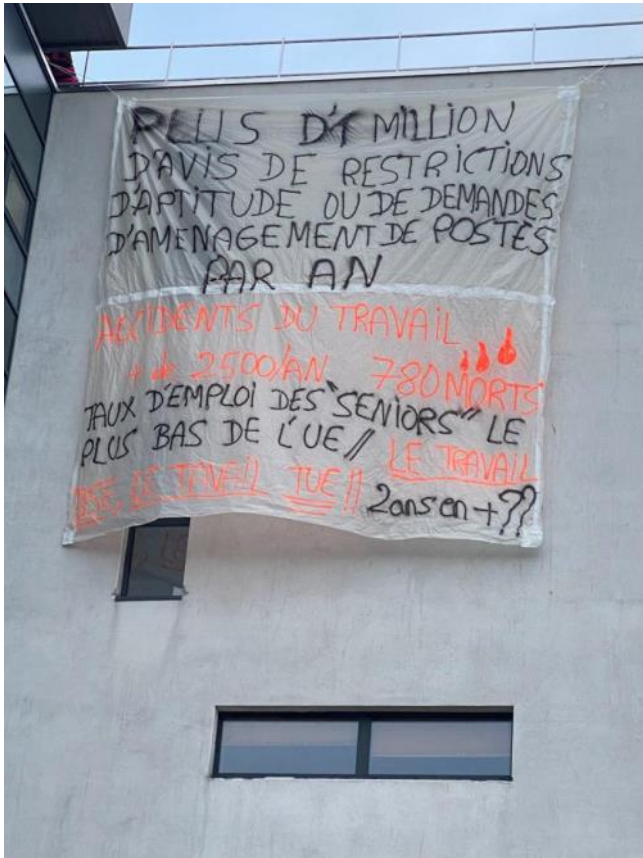 PLUS D'1 MILLION
D'AVIS DE RESTRICTIONS
D'APTITUDE OU DE DEMANDES
D'AMENAGEMENT DE POSTES
PAR AN
ACCIDENTS DU TRAVAIL
+ de 2500/AN 780 MORTS
TAUX D'EMPLOI DES "SENIORS" LE
PLUS BAS DE L'UE // LE TRAVAIL
USE, LE TAVAIL TUE !! 2 ans en + ??